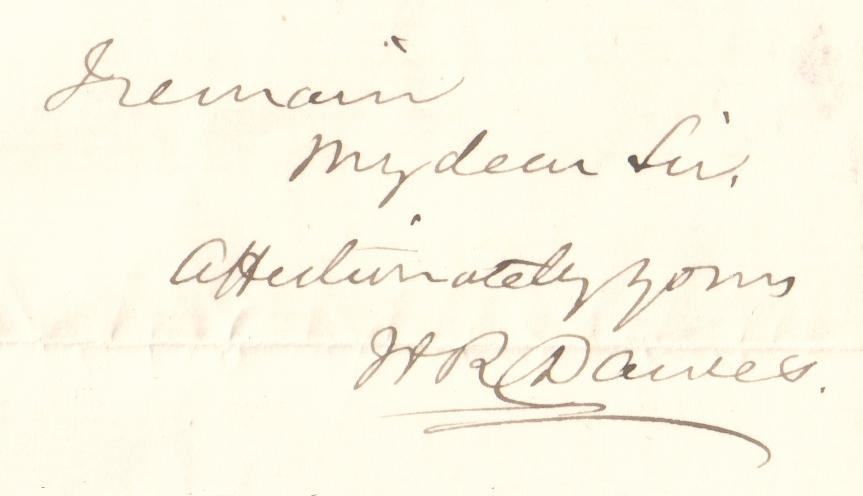 I remain
My dear Sir,
Affectionately yours
H R Dawes.